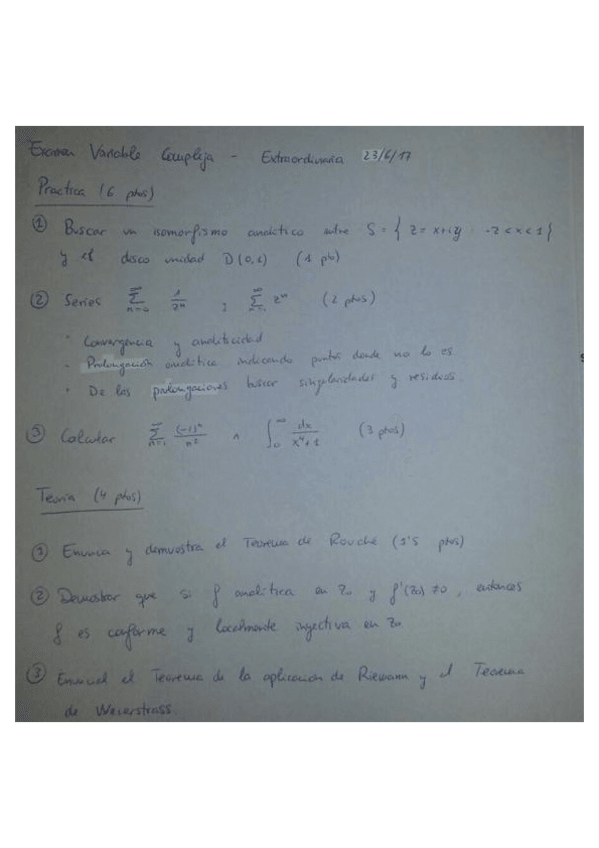 Examen Variable Compleja - Extraordinaria 23/6/17
Practica (6 ptos)
① Buscar un isomorfismo analitico entre S = { z = x+iy -2 < x < 1 }
y el disco unidad D(0,1) (1 pto)
② Series ∑_{n=0}^{∞} 1/z^n ; ∑_{n=1}^{∞} z^n (2 ptos)
· Convergencia y analiticidad
· Prolongación analitica indicando puntos donde no lo es
· De las prolongaciones buscar singularidades y residuos
③ Calcular ∑_{n=1}^{∞} (-1)^n/n^2 ∧ ∫_0^∞ dx/(x^4+1) (3 ptos)
Teoria (4 ptos)
① Enuncia y demuestra el Teorema de Rouché ( ptos)
② Demostrar que si f analitica en z₀ y f'(z₀) ≠ 0, entonces
f es conforme y localmente inyectiva en z₀
③ el Teorema de la aplicación de Riemann y el Teorema
de Weierstrass.